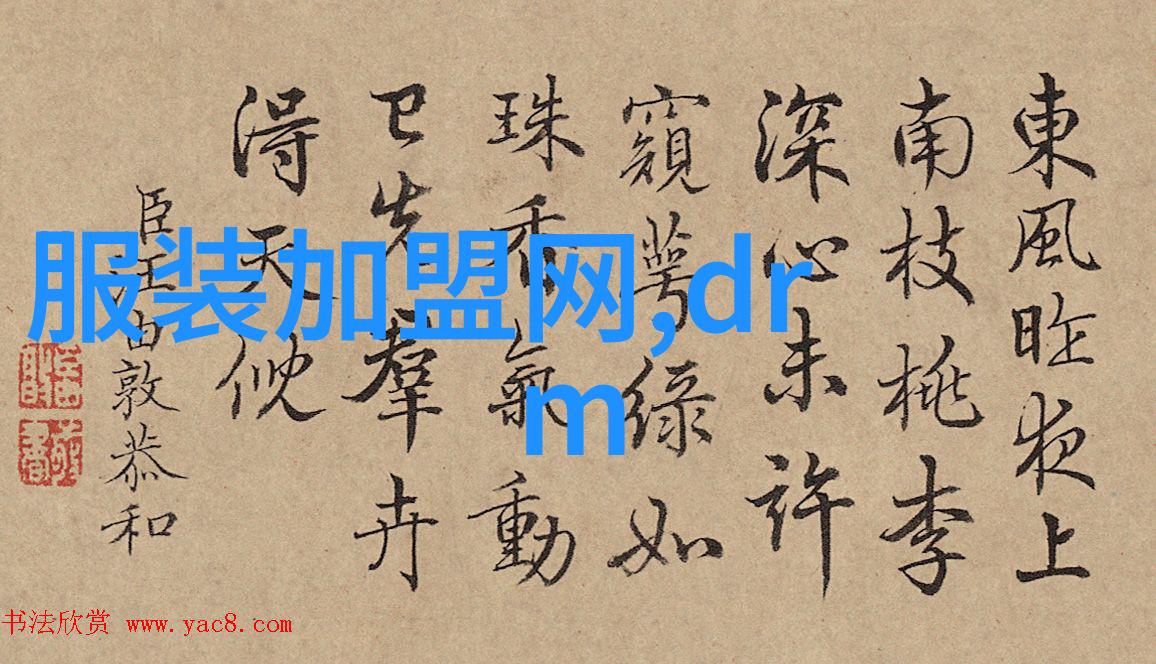 東風昨夜上
南枝桃李
深心未許
窺萼綠如
珠香氣動
已先羣卉
得天倪
臣汪由敦恭和
服装加盟网,dr
m
书法欣赏 www.yac8.com